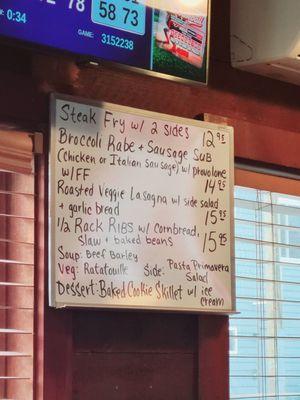 0:34
78
58 73
GAME: 3152238
Steak Fry w/ 2 sides 12.95
Broccoli Rabe + Sausage Sub
(Chicken or Italian Sausage) w/ provolone
w/FF 14.95
Roasted Veggie Lasagna w/ side salad
+ garlic bread 15.95
1/2 Rack Ribs w/ Cornbread,
Slaw + baked beans 15.95
Soup: Beef Barley
Veg: Ratatouille Side: Pasta Primavera
Salad
Dessert: Baked Cookie Skillet w/ ice
cream